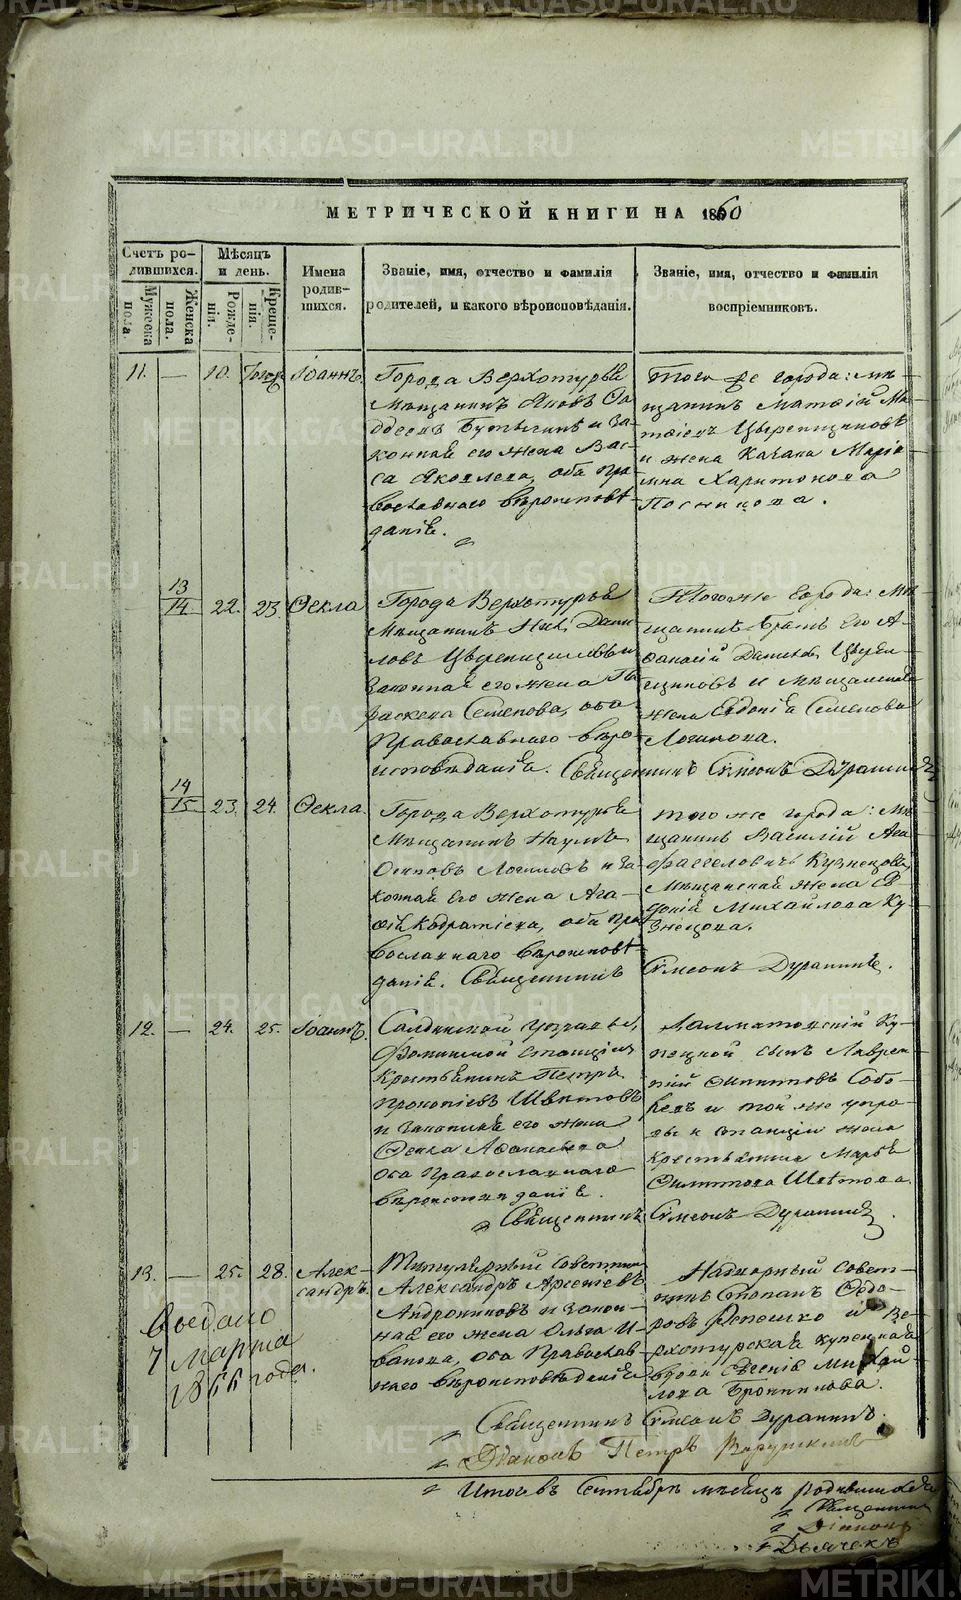 МЕТРИЧЕСКОЙ КНИГИ НА 1860
Счетъ ро-
дившихся.
Мужеска
пола.
Женска
пола.
Мѣсяцъ
и день.
Рожде-
нія.
Креще-
нія.
Имена
родив-
шихся.
Званіе, имя, отчество и фамилія
родителей, и какого вѣроисповѣданія.
Званіе, имя, отчество и фамилія
воспріемниковъ.
11. — 10. Іоаннъ.
Города Верхотурья
мѣщанинъ Яковъ
и за-
конная его жена Вас-
са Яковлева, оба пра-
вославнаго вѣроисповѣ-
данія.
того же города: мѣ-
щанинъ Матѳій Ма-
тѳіевъ Цыренщиковъ
и жена Марія-
мна Харитонова
Посникова.
13
14 22. 23. Ѳекла
Города Верхотурья
мѣщанинъ Дани-
ловъ и
законная его жена Па-
раскева Семенова, оба
православнаго вѣро-
исповѣданія.
Того же города: мѣ-
щанинъ братъ его А-
ѳанасій
и мѣщанская
жена Евдокія Семенова
Логинова.
Священникъ Сѵмеонъ Дуранинъ
14
15 23. 24. Ѳекла.
Города Верхотурья
мѣщанинъ Наумъ
Осиповъ Логиновъ и за-
конная его жена Ага-
ѳія Кодратіева, оба пра-
вославнаго вѣроисповѣ-
данія. Священникъ
того же города: мѣ-
щанинъ Василій Ага-
фангеловичъ Кузнецовъ
мѣщанская жена Ев-
докія Михайлова Ку-
знецова.
Сѵмеонъ Дуранинъ.
12. — 24. 25. Іоаннъ.
Салдинской управы,
Фоминской станціи
крестьянинъ Петръ
Прокопіевъ Шѣитовъ
и законная его жена
Ѳекла Аѳанасьева
оба православнаго
вѣроисповѣданія.
Далматовскій ку-
пецкой сынъ Лаврен-
тій Филиповъ Собо-
левъ и той же упра-
вы и станціи жена
крестьянина Марья
Филипова Шѣитова
Священникъ Сѵмеонъ Дуранинъ.
13. — 25. 28. Алек-
сандръ.
Титулярный совѣтникъ
Александръ Арсеніевъ
Андрониковъ и закон-
ная его жена Ольга И-
ванова, оба православ-
наго вѣроисповѣданія
Надворный совѣт-
никъ Степанъ Ѳедо-
ровъ Репешко и Ве-
рхотурская купецкая
вдова Евгенія Михай-
лова Бронникова.
Выдано
7 марта
1866 года.
Священникъ Сѵмеонъ Дуранинъ.
Діаконъ Петръ
Итого въ Сентябрѣ мѣсяцѣ родившихся
Священникъ
Діаконъ
Дьячекъ
METRIKI.GASO-URAL.RU